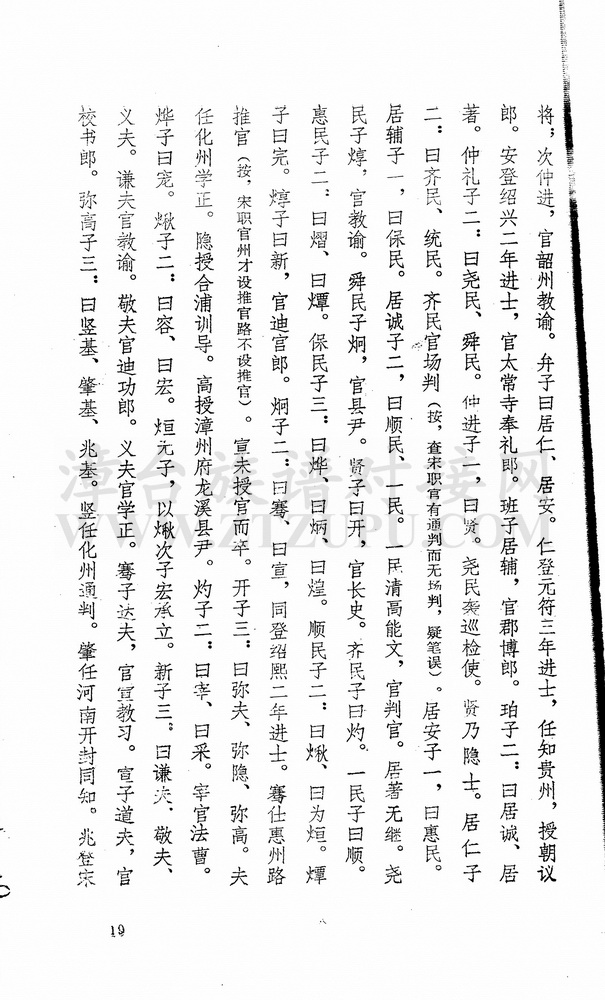 将；次仲进，官韶州教谕。弁子曰居仁、居安。仁登元符三年进士，任知贵州，授朝议
郎。安登绍兴二年进士，官太常寺奉礼郎。班子居辅，官郡博郎。珀子二：曰居诚、居
著。仲礼子二：曰尧民、舜民。仲进子一，曰贤。尧民袭巡检使。贤乃隐士。居仁子
二：曰齐民、统民。齐民官场判（按，查宋职官有通判而无场判，疑笔误）。居安子一，曰惠民。
居辅子一，曰保民。居诚子二，曰顺民、一民。一民清高能文，官判官。居著无继。尧
民子焞，官教谕。舜民子炯，官县尹。贤子曰开，官长史。齐民子曰灼。一民子曰顺。
惠民子二：曰熠、曰燂。保民子三：曰烨、曰炳、曰煌。顺民子二：曰楸、曰为烜。燂
子曰完。焞子曰新，官迪官郎。炯子二：曰骞、曰宣，同登绍熙二年进士。骞仕惠州路
推官（按，宋职官州才设推官路不设推官）。宣未授官而卒。开子三：曰弥夫、弥隐、弥高。夫
任化州学正。隐授合浦训导。高授漳州府龙溪县尹。灼子二：曰宰、曰采。宰官法曹。
烨子曰宠。楸子二：曰容、曰宏。烜无子，以楸次子宏承立。新子三：曰谦夫、敬夫、
义夫。谦夫官教谕。敬夫官迪功郎。义夫官学正。骞子达夫，官宣教习。宣子道夫，官
校书郎。弥高子三：曰竖基、肇基、兆基。竖任化州通判。肇任河南开封同知。兆登宋
19
漳台族谱对接网
WWW.ZTZUPU.COM